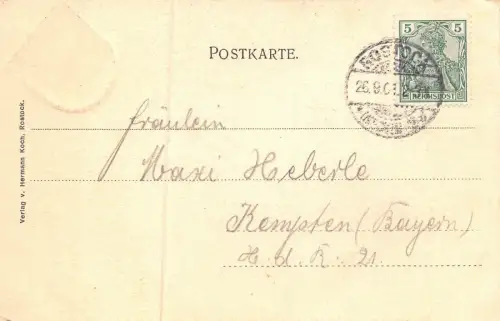 POSTKARTE.
5 5
REICHSPOST
ROSTOCK
26.9.01
Fräulein
Maxi Heberle
Kempten (Bayern)
H. d. R. 21.
Verlag v. Hermann Koch, Rostock.